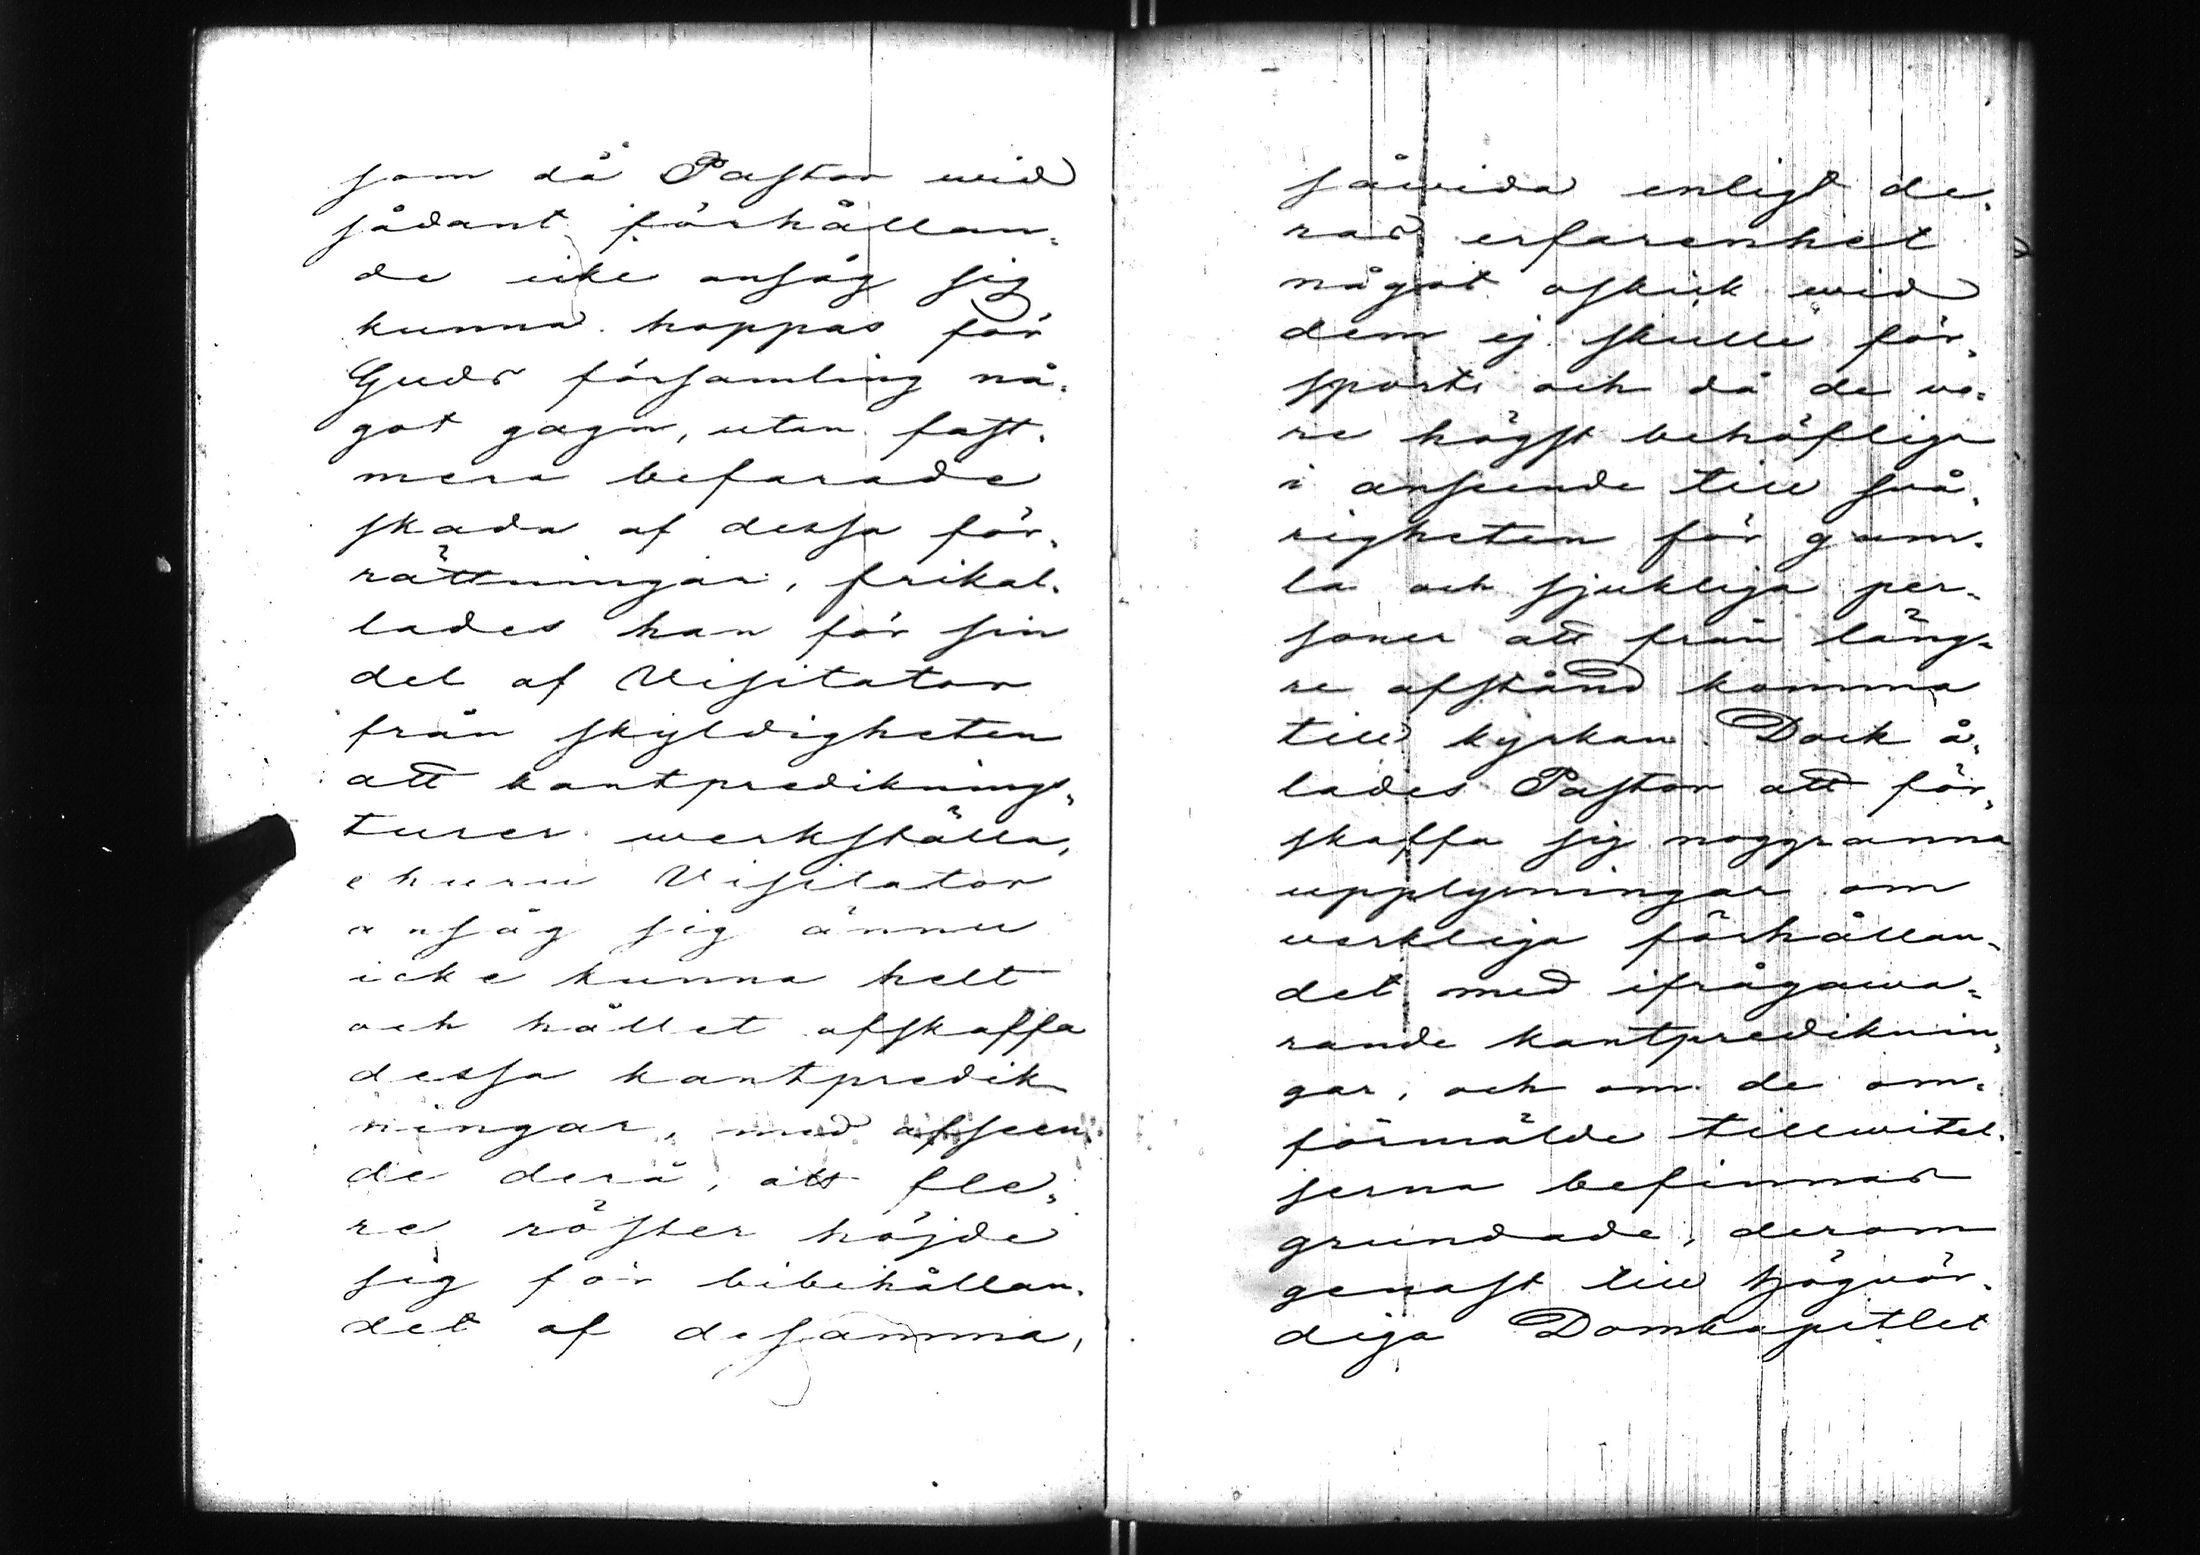 som då Pastor wid
sådant förhållan=
de icke ansåg sig
kunna hoppas för
Guds församling nå=
got gagn, utan fast=
mera befarade
skada af dessa för=
rättningar, frikal=
lades han för sin
del af Visitator
från skyldigheten
att kantprediknings=
turer werkställa,
ehuru Visitator
ansåg sig ännu
icke kunna helt
och hållet afskaffa
dessa kantpredik
ningar, med afseen=
de derå, att fle=
re röster höjde
sig för bibehållan=
det af desamma,
såvida enligt de=
ras erfarenhet
något oskick wid
dem ej skulle för=
sports och då de vo=
re högst behöfliga
i anseende till svå=
righeten för gam=
la och sjukliga per=
soner att från läng=
re afstånd komma
till kyrkan. Dock å=
lades Pastor att för=
skaffa sig noggranna
upplysningar om
verkliga förhållan=
det med ifrågawa=
rande kantprediknin=
gar, och om de om=
förmälde tillwitel=
serna befinnas
grundade, derom
genast till högvör=
diga Domkapitlet